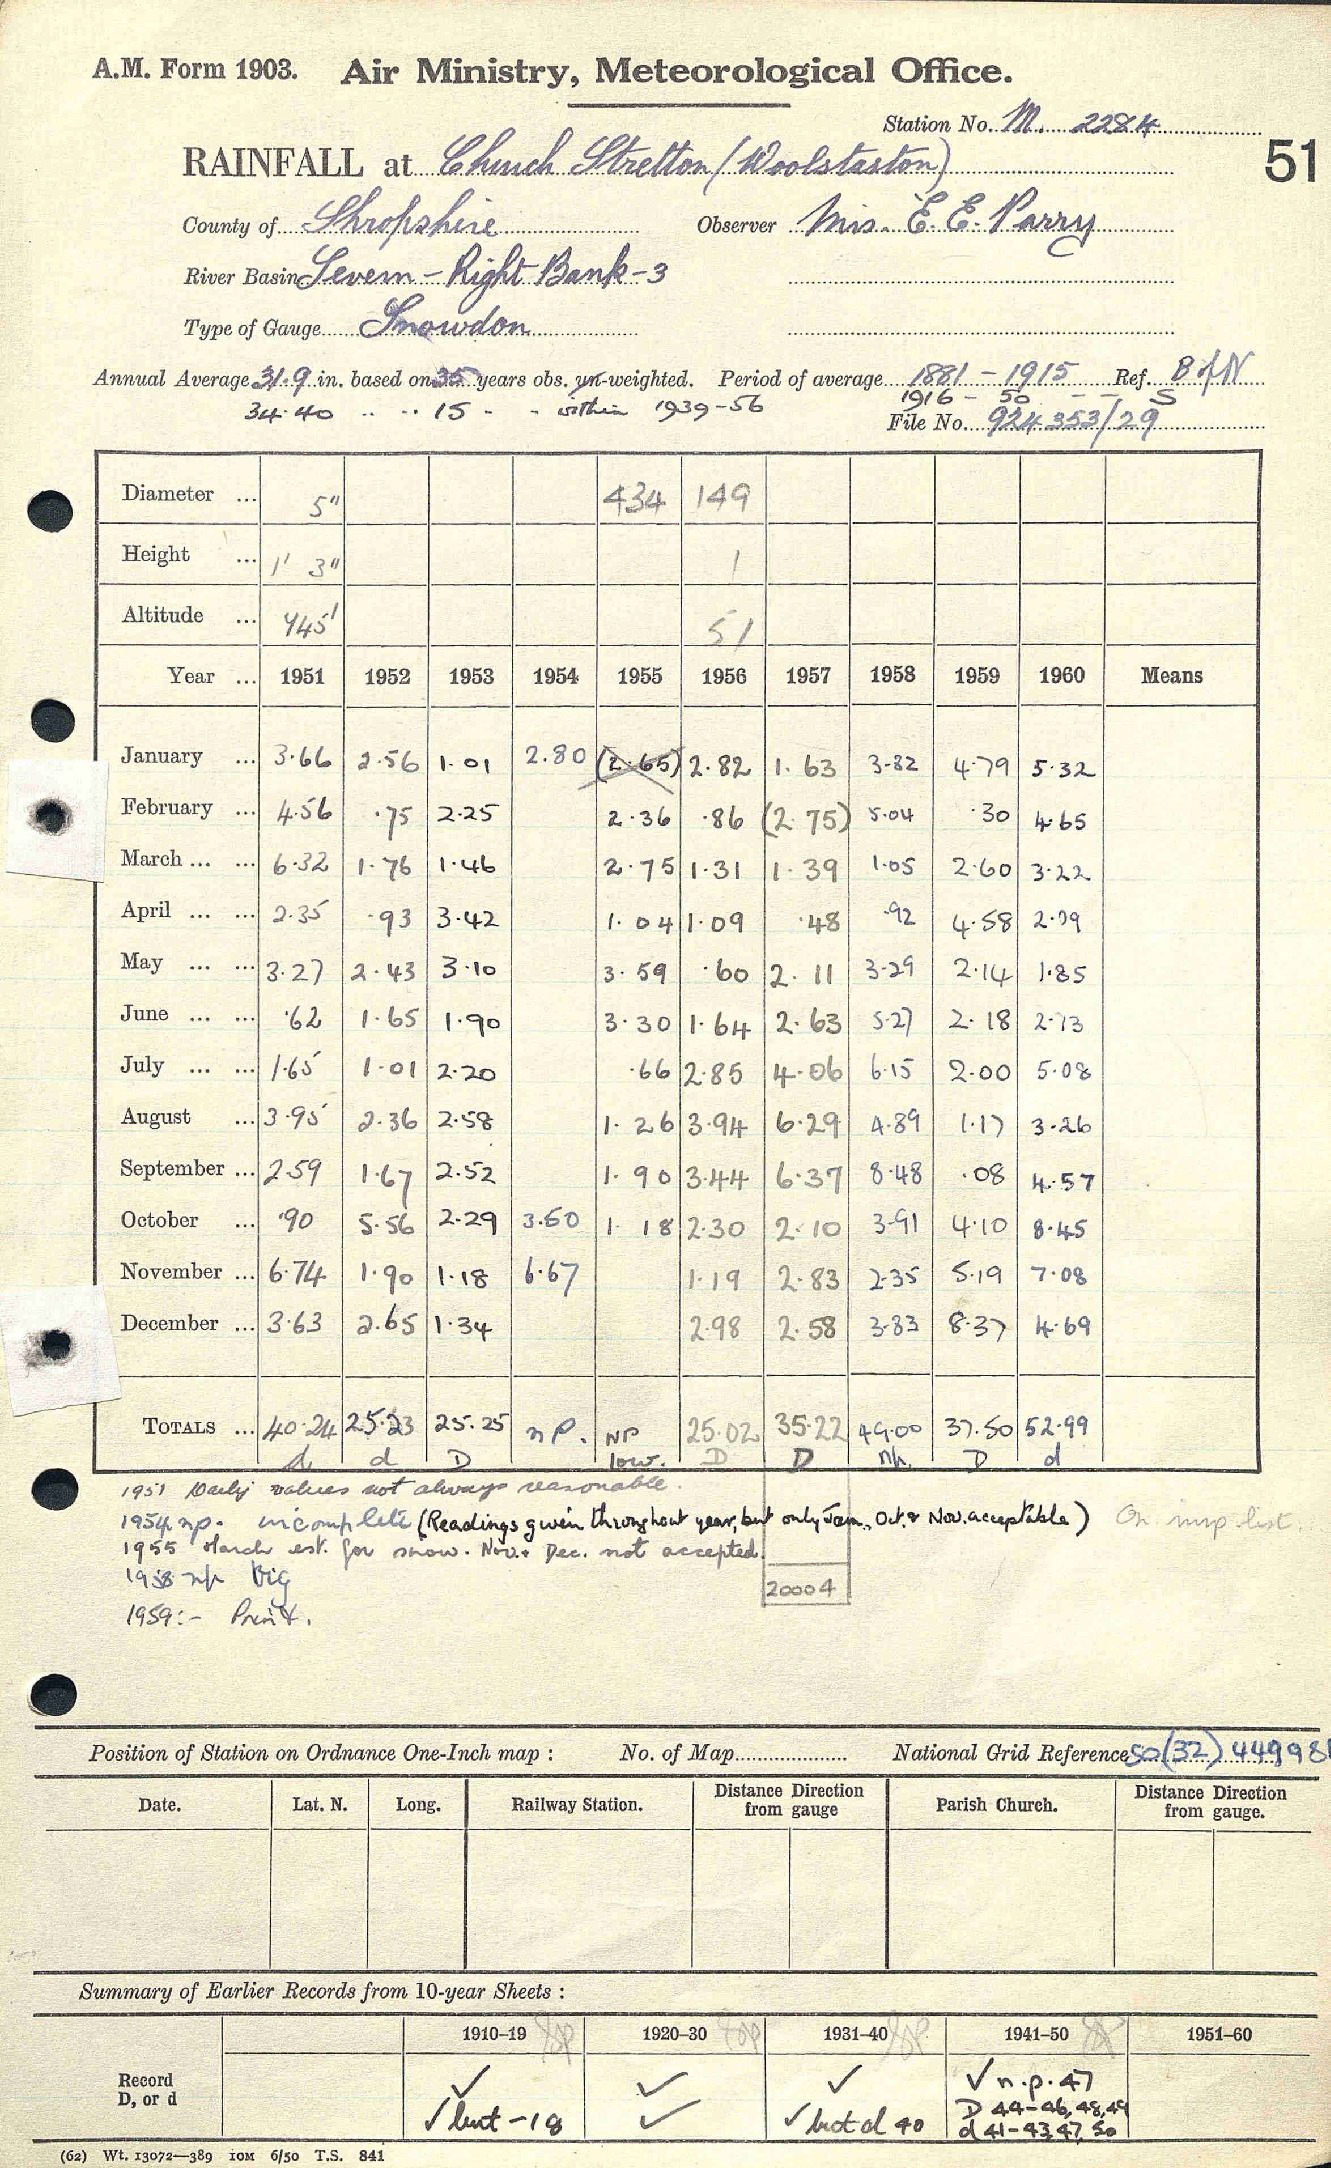 A.M. Form 1903. Air Ministry, Meteorological Office.
Station No. M. 2284
51
RAINFALL at Church Stretton (Woolstaston)
County of Shropshire Observer Mrs. E. E. Parry
River Basin Severn - Right Bank - 3
Type of Gauge Snowdon
Annual Average 31.9 in. based on 35 years obs. un-weighted. Period of average 1881 - 1915 Ref. B of N
1916 - 50 - - S
34.40 .. .. 15 - - within 1939-56
File No. 924353/29
Diameter ... 5" 434 149
Height ... 1' 3" 1
Altitude ... 745' 51
Year ... 1951 1952 1953 1954 1955 1956 1957 1958 1959 1960 Means
January ... 3.66 2.56 1.01 2.80 (2.65) 2.82 1.63 3.82 4.79 5.32
February ... 4.56 .75 2.25 2.36 .86 (2.75) 5.04 .30 4.65
March ... ... 6.32 1.76 1.46 2.75 1.31 1.39 1.05 2.60 3.22
April ... ... 2.35 .93 3.42 1.04 1.09 .48 .92 4.58 2.09
May ... ... 3.27 2.43 3.10 3.59 .60 2.11 3.29 2.14 1.85
June ... ... .62 1.65 1.90 3.30 1.64 2.63 5.27 2.18 2.73
July ... ... 1.65 1.01 2.20 .66 2.85 4.06 6.15 2.00 5.08
August ... 3.95 2.36 2.58 1.26 3.94 6.29 4.89 1.17 3.26
September ... 2.59 1.67 2.52 1.90 3.44 6.37 8.48 .08 4.57
October ... .90 5.56 2.29 3.60 1.18 2.30 2.10 3.91 4.10 8.45
November ... 6.74 1.90 1.18 6.67 1.19 2.83 2.35 5.19 7.08
December ... 3.63 2.65 1.34 2.98 2.58 3.83 8.37 4.69
TOTALS ... 40.24 25.23 25.25 n P. NP 25.02 35.22 49.00 37.50 52.99
d d D low. D D np. D d
1951 Daily values not always reasonable.
1954 np. incomplete (Readings given throughout year, but only Jan., Oct. & Nov. acceptable) On map list.
1955 March est. for snow. Nov. & Dec. not accepted.
1958 np big
20004
1959:- Print.
Position of Station on Ordnance One-Inch map : No. of Map National Grid Reference SO(32) 449981
Date. Lat. N. Long. Railway Station. Distance from gauge Direction Parish Church. Distance from gauge. Direction
Summary of Earlier Records from 10-year Sheets :
1910–19 1920–30 1931–40 1941–50 1951–60
Record ✓ ✓ ✓ ✓ n.p. 47
D, or d ✓ but -18 ✓ ✓ but d 40 D 44-46, 48, 49
d 41-43, 47, 50
(62) Wt. 13072—389 10M 6/50 T.S. 841